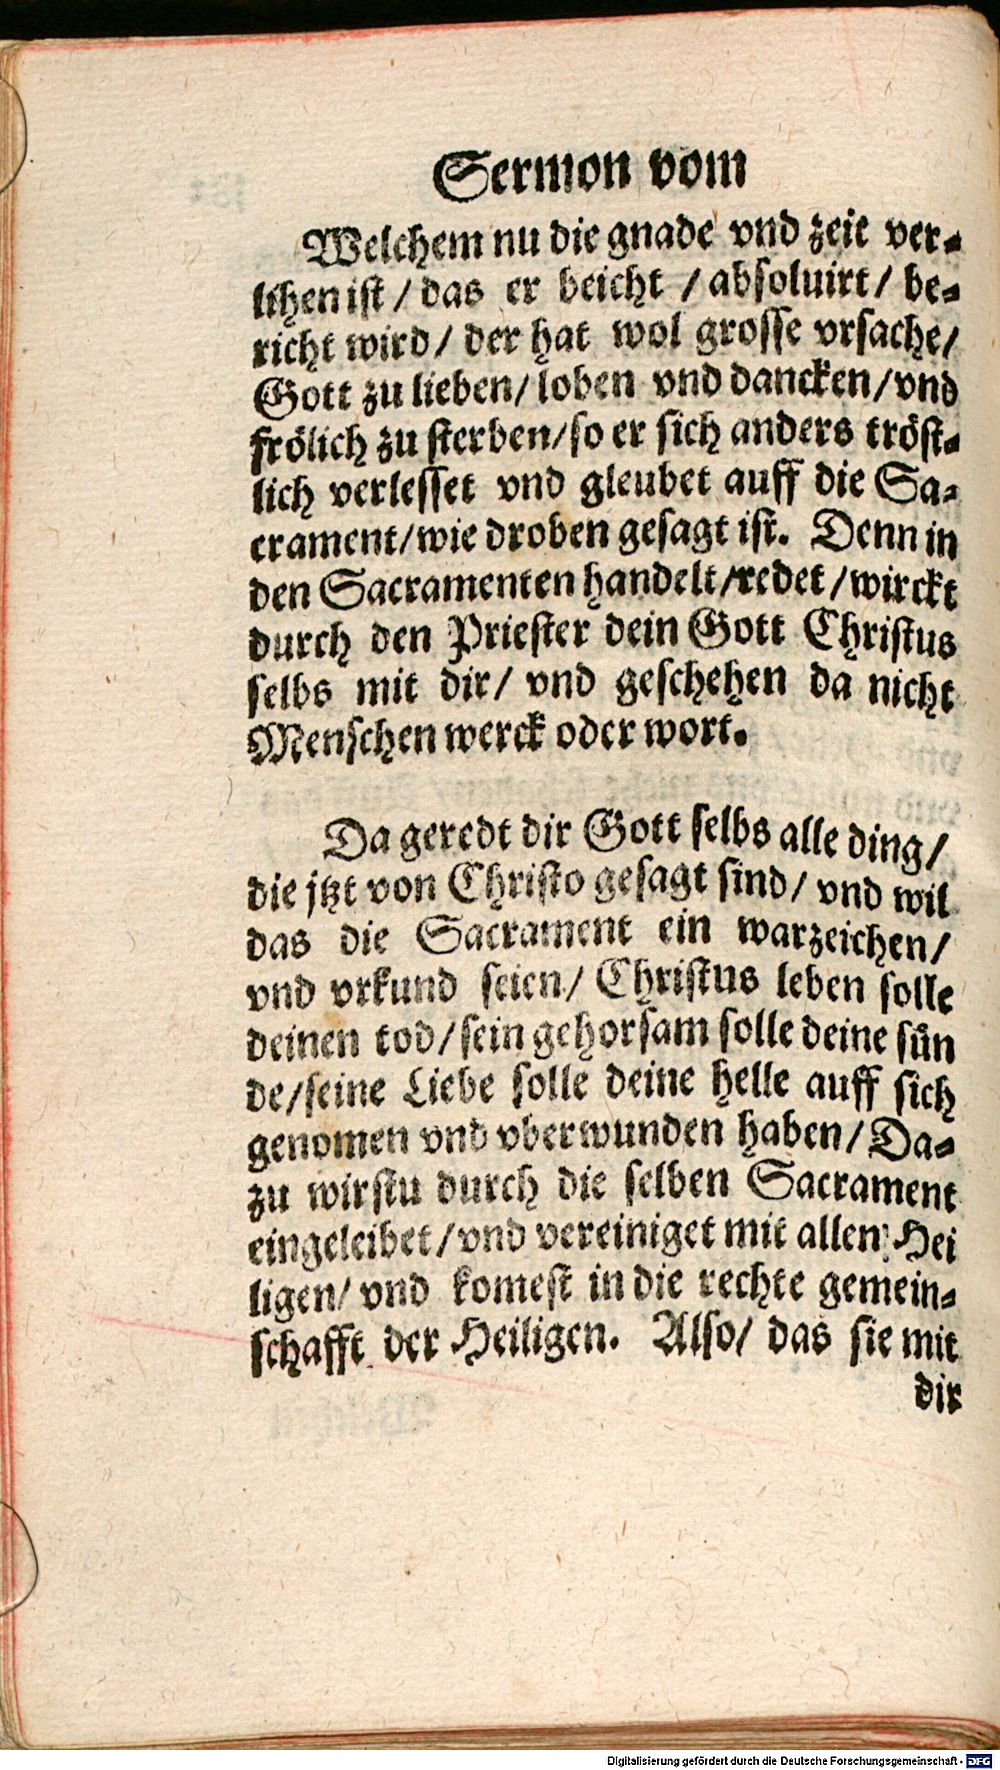 Sermon vom
Welchem nu die gnade vnd zeit ver-
lihen ist / das er beicht / absoluirt / be-
richt wird / der hat wol grosse vrsache /
Gott zu lieben / loben vnd dancken / vnd
frölich zu sterben / so er sich anders tröst-
lich verlesset vnd gleubet auff die Sa-
crament / wie droben gesagt ist. Denn in
den Sacramenten handelt / redet / wirckt
durch den Priester dein Gott Christus
selbs mit dir / vnd geschehen da nicht
Menschen werck oder wort.
Da geredt dir Gott selbs alle ding /
die jtzt von Christo gesagt sind / vnd wil
das die Sacrament ein warzeichen /
vnd vrkund seien / Christus leben solle
deinen tod / sein gehorsam solle deine sün
de / seine Liebe solle deine helle auff sich
genomen vnd vberwunden haben / Da-
zu wirstu durch die selben Sacrament
eingeleibet / vnd vereiniget mit allen Hei
ligen / vnd komest in die rechte gemein-
schafft der Heiligen. Also / das sie mit
dir
Digitalisierung gefördert durch die Deutsche Forschungsgemeinschaft - DFG